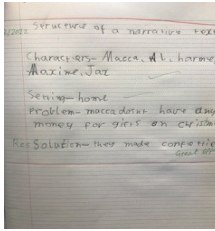 Structure of a narrative text
Characters- Macca, Al, harme
Maxine, Jaz
Setting- home
Problem- macca doesnt have any
money for gifts on christm
Solution- they made